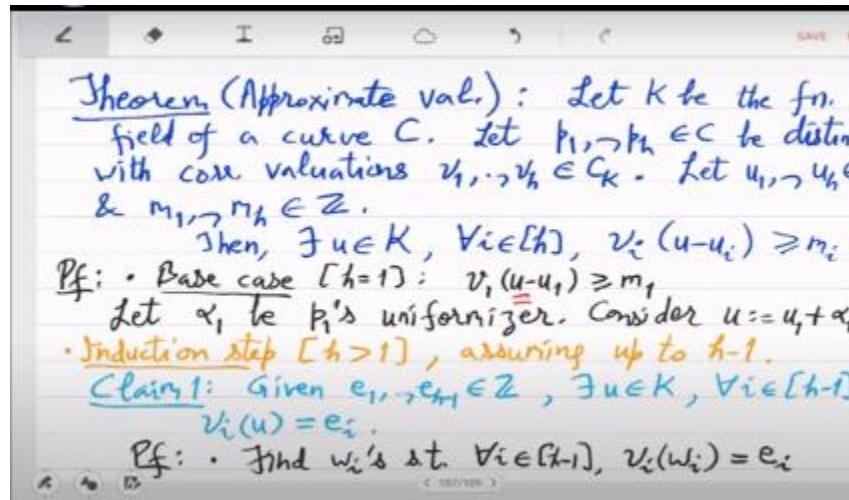 SAVE
Theorem (Approximate val.) : Let K be the fn.
field of a curve C. Let p₁,..,pₕ ∈ C be distin
with corr. valuations v₁,..,vₕ ∈ C_K. Let u₁,..,uₕ ∈
& m₁,..,mₕ ∈ ℤ.
Then, ∃u∈K, ∀i∈[h], vᵢ(u-uᵢ) ⩾ mᵢ
Pf: · Base case [h=1]: v₁(u-u₁) ⩾ m₁
Let α₁ be p₁'s uniformizer. Consider u := u₁ + α
· Induction step [h>1], assuming up to h-1.
Claim 1: Given e₁,..,eₕ₋₁ ∈ ℤ, ∃u∈K, ∀i∈[h-1]
vᵢ(u) = eᵢ.
Pf: · Find wᵢ's s.t. ∀i∈[h-1], vᵢ(wᵢ) = eᵢ
< 107/109 >